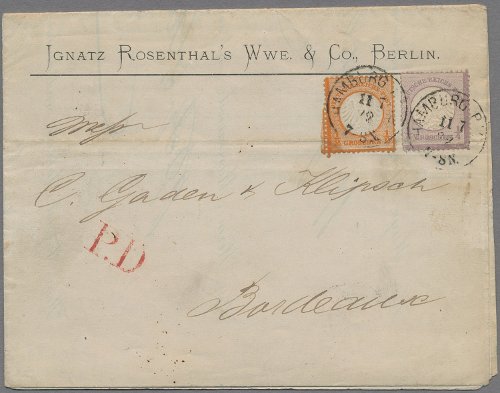 IGNATZ ROSENTHAL'S WWE. & CO., BERLIN.
HAMBURG
11 7
HAMBURG
11 7
GROSCHEN
Messrs
C. Gaden & Klipsch
P.D
Bordeaux